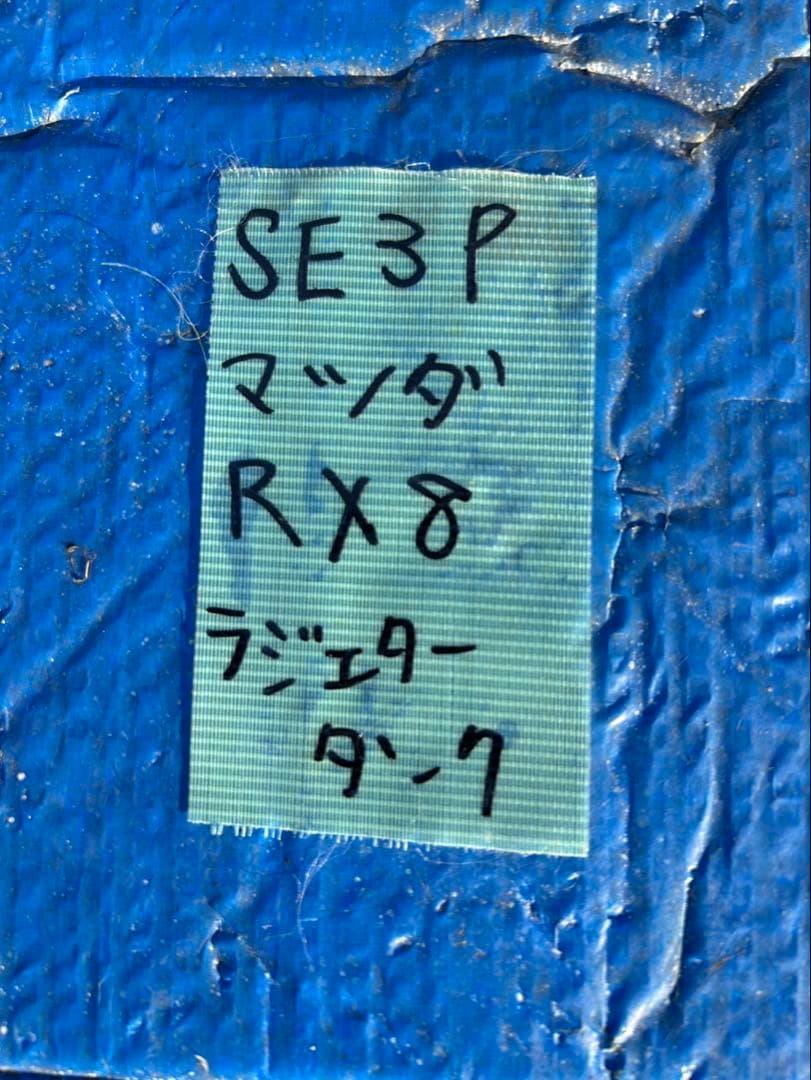 SE3P
マツダ
RX8
ラジエター
タンク